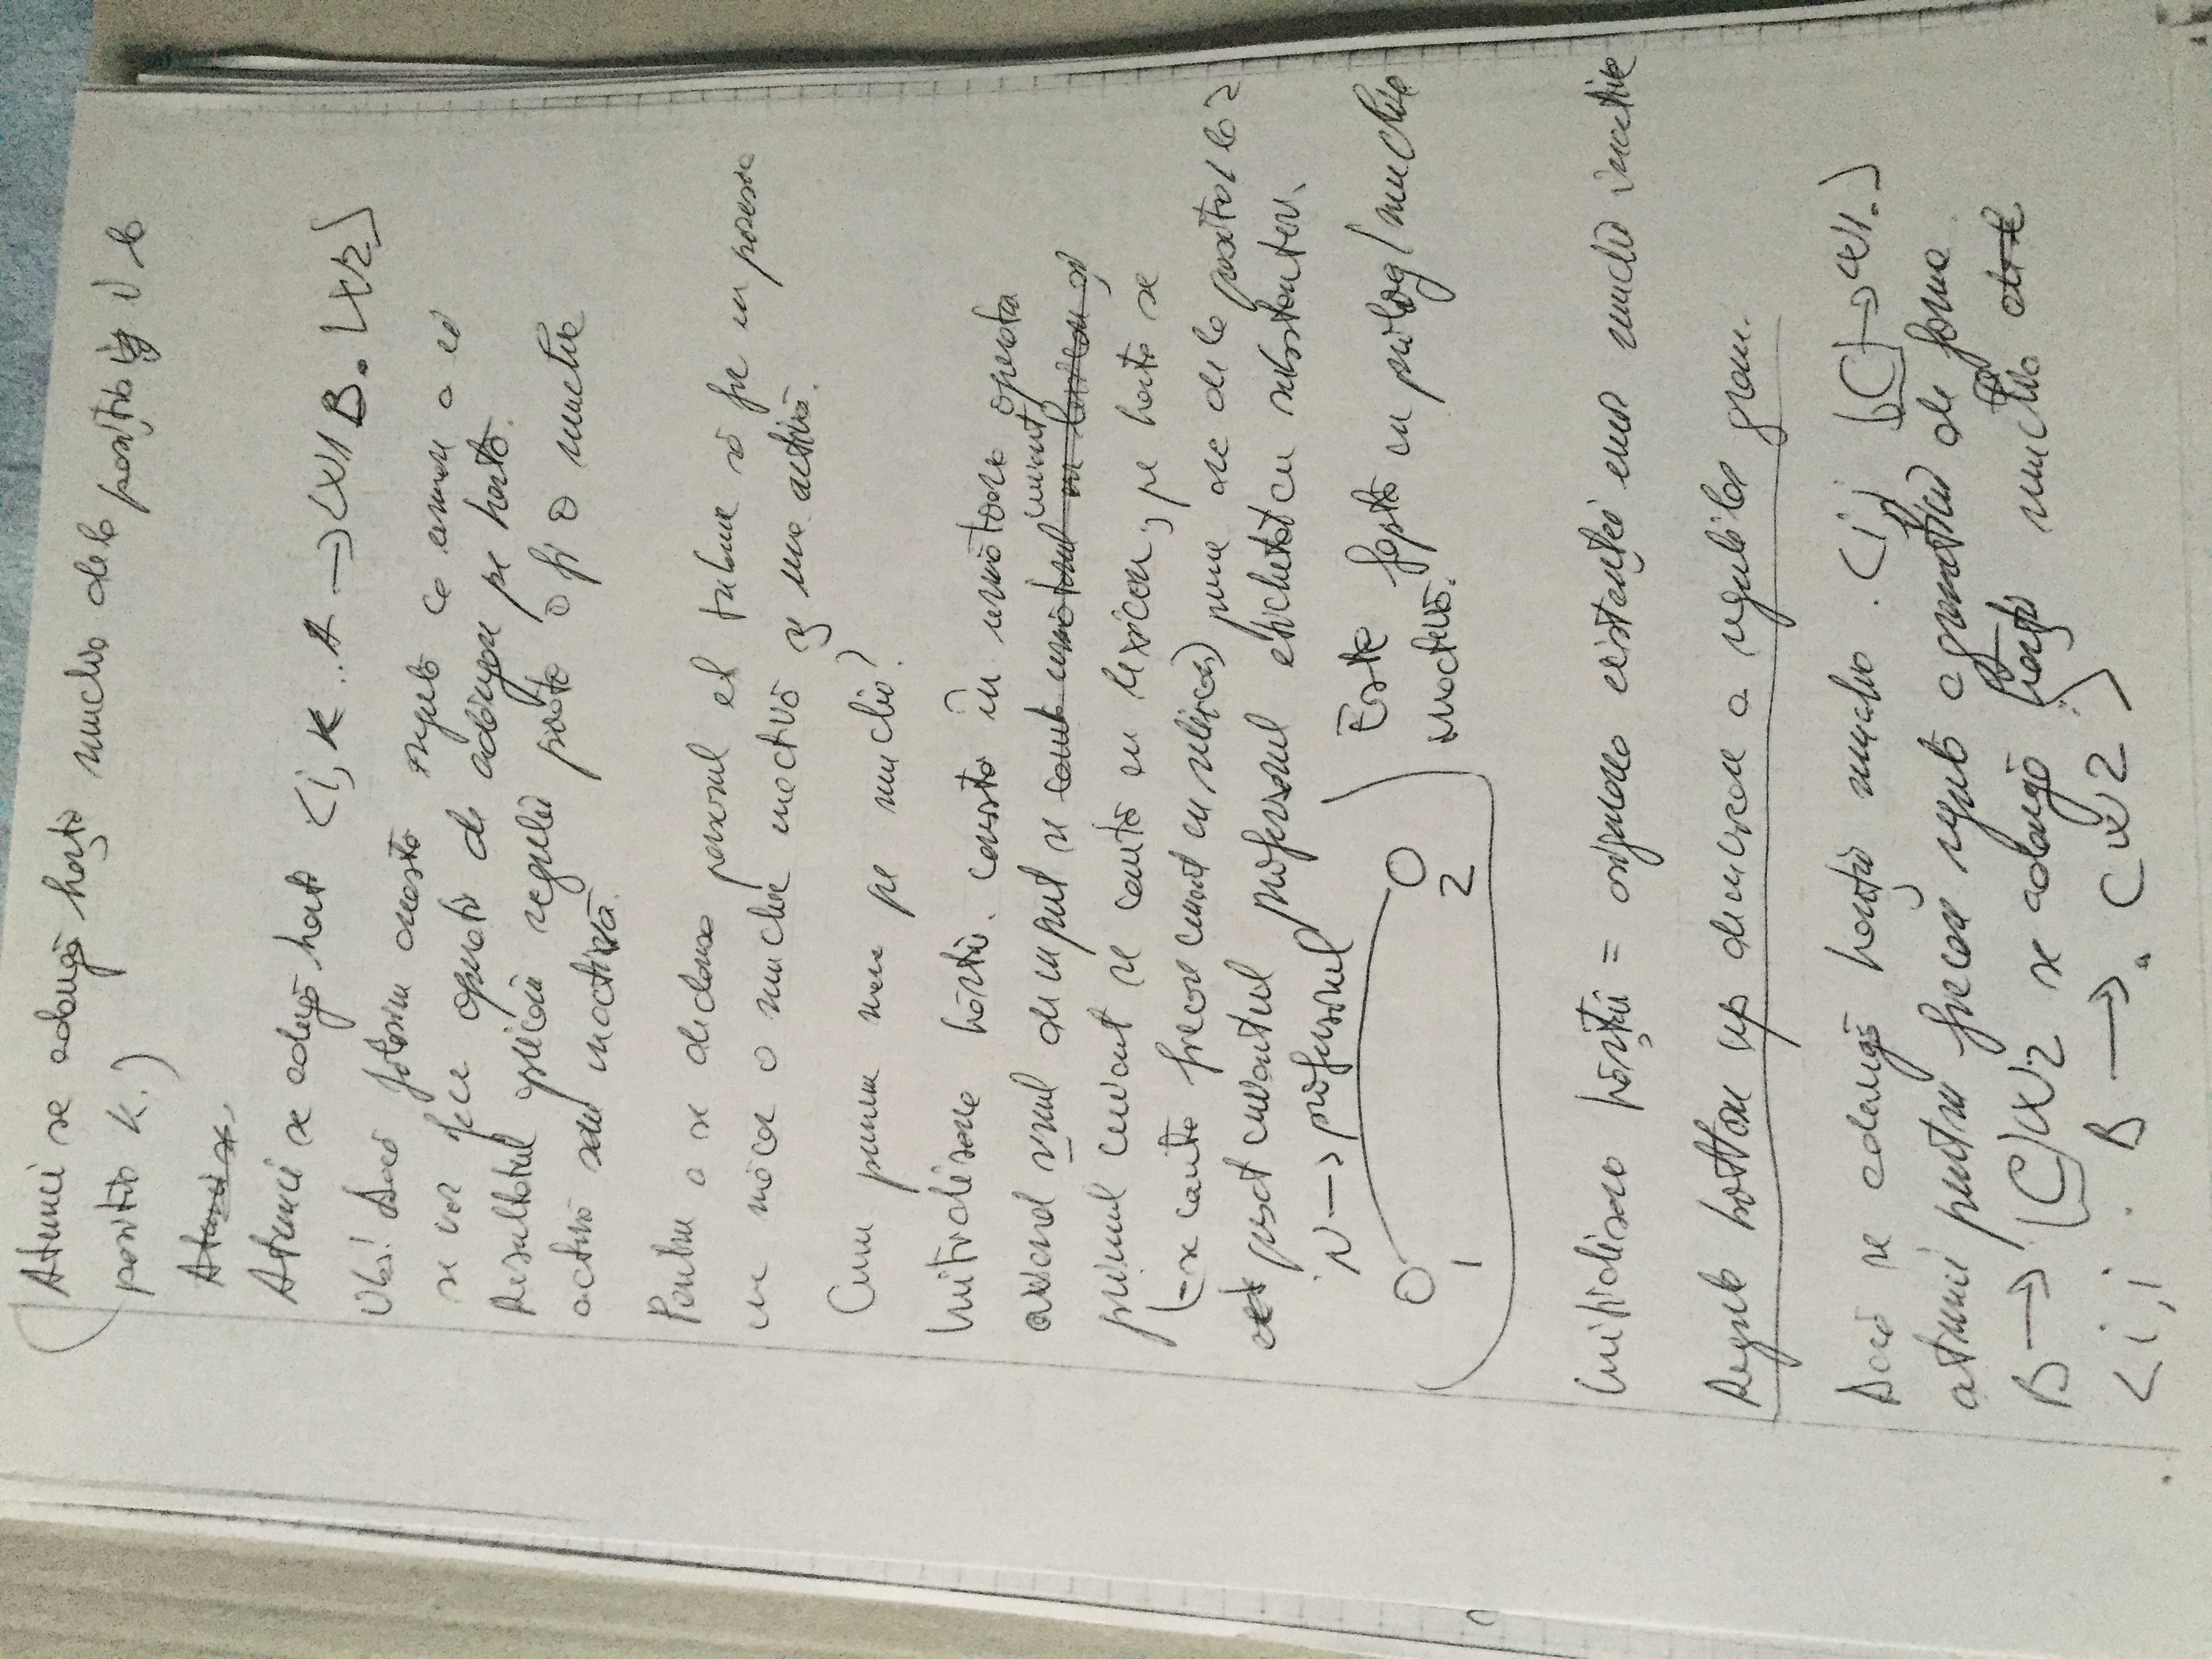 Atunci se adaugă hărții muchia de la poziția i la
poziția K.)
Atunci se
Atunci se adaugă hărții <i, K .. A → W1 B. W2>
Obs! Dacă folosim această regulă ca urmare a ei
se vor face operații de adăugare pe hartă.
Rezultatul aplicării regulii poate a fi o muchie
activă sau inactivă.
Pentru a se declanșa parserul el trebuie să fie în posesia
măcar o muchie inactivă și una activă.
Cum punem mâna pe muchia?
Initializarea hărții. constă în următoarea operația
având șirul de input se caută următorul cuvant în lexicon și
primul cuvant se caută în lexicon, pe hartă se
(-se caută fiecare cuvant în lexicon) pune arc de la poziția 1 la 2
pest cuvantul profesorul etichetat cu substantiv.
N → profesorul
Este faptă în prolog / muchie
inactivă.
1 2
Initializarea hărții = asigurarea existenței unor muchii inactive
Regula bottom up de invocare a regulilor gram.
Dacă se adaugă hărții muchia <i,j C → W1.>
atunci pentru fiecare regulă a gramaticii de forma
B → C W2 se adaugă hărții muchia de l
<i,i . B → . C W2>